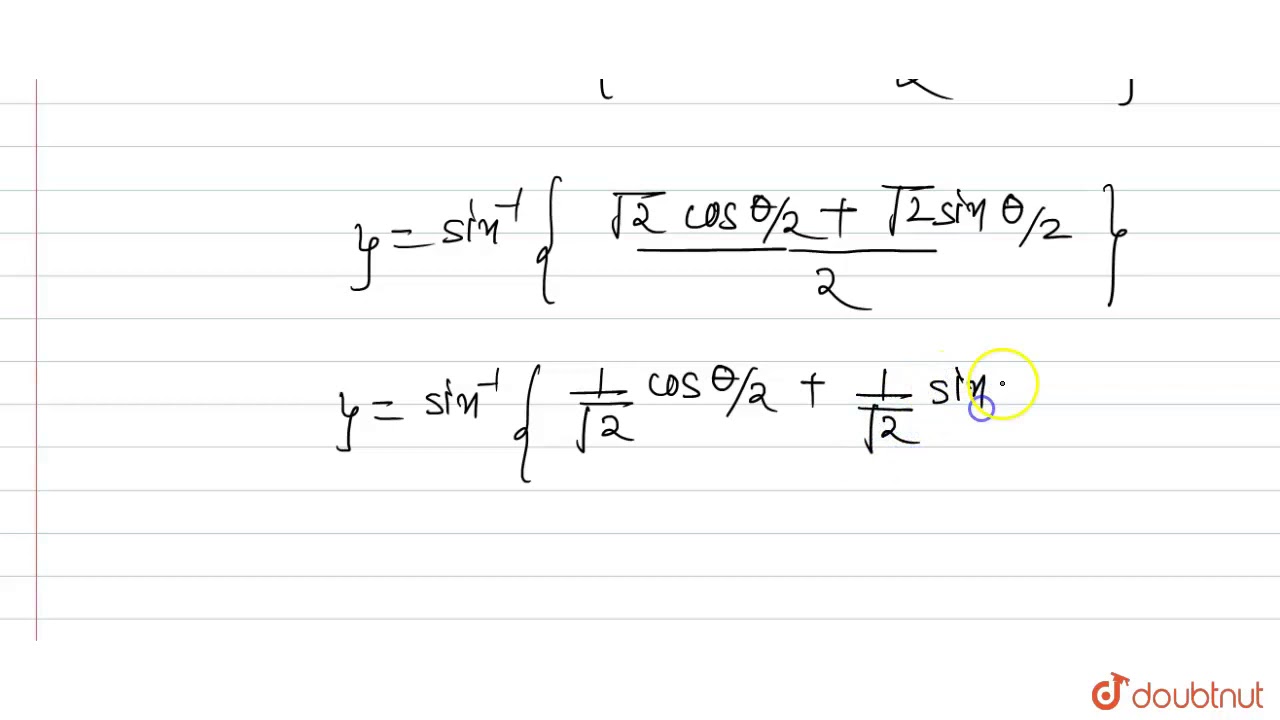 y = sin⁻¹ { √2 cos θ/2 + √2 sin θ/2 / 2 }
y = sin⁻¹ { 1/√2 cos θ/2 + 1/√2 sin
doubtnut